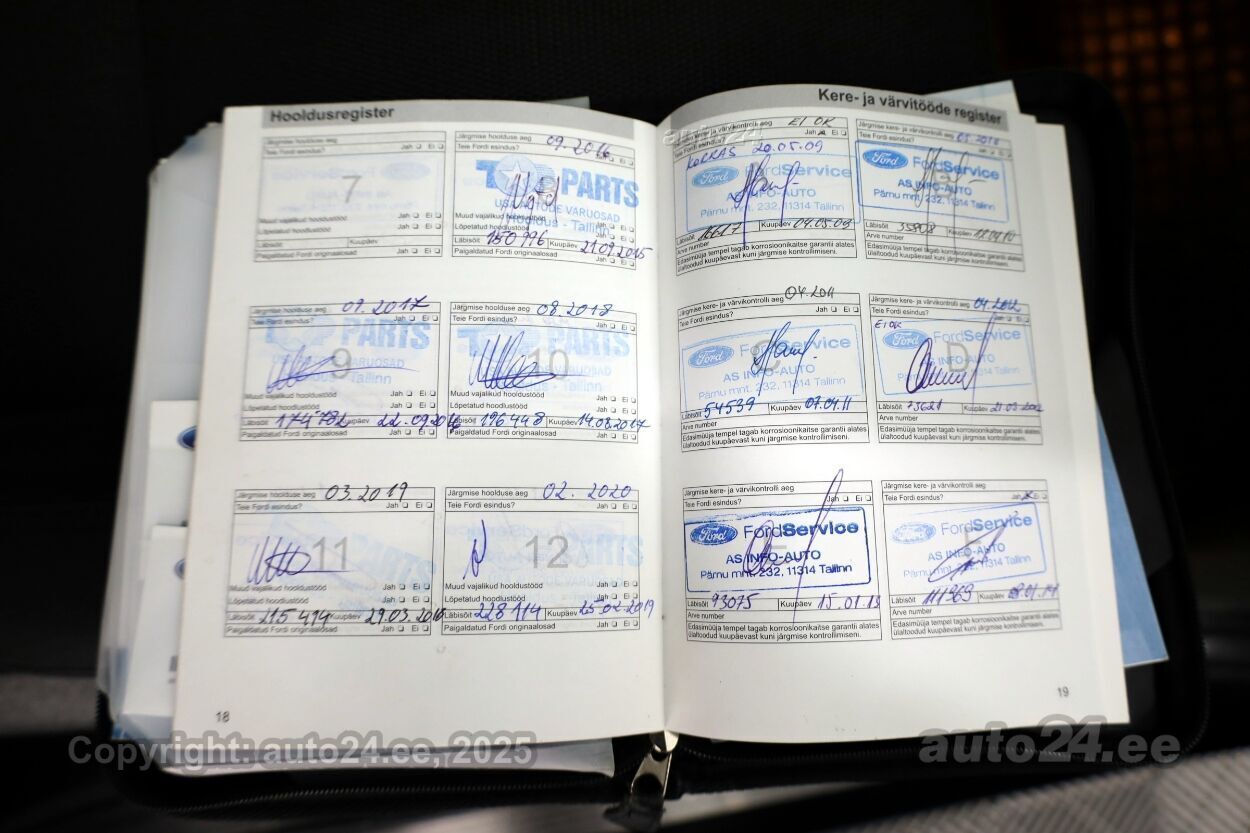 Hooldusregister
Järgmise hoolduse aeg
Teie Fordi esindus? Jah Ei
7
Muud vajalikud hooldustööd Jah Ei
Lõpetatud hoodlustööd Jah Ei
Läbisõit Kuupäev
Paigaldatud Fordi originaalosad Jah Ei
Järgmise hoolduse aeg 09.2016
Teie Fordi esindus?
PARTS
USA AUTODE VARUOSAD
Tallinn
Muud vajalikud hooldustööd
Läbisõit 150 996 Kuupäev 21.09.2015
Paigaldatud Fordi originaalosad Jah Ei
Järgmise hoolduse aeg 09.2017
Teie Fordi esindus? Jah Ei
PARTS
9
VARUOSAD
Tallinn
Muud vajalikud hooldustööd Jah Ei
Lõpetatud hoodlustööd Jah Ei
Läbisõit Kuupäev 22.09.2016
Paigaldatud Fordi originaalosad Jah Ei
Järgmise hoolduse aeg 08.2018
Teie Fordi esindus? Jah Ei
PARTS
10
Tallinn
Muud vajalikud hooldustööd Jah Ei
Lõpetatud hoodlustööd Jah Ei
Läbisõit 196 448 Kuupäev 14.08.2017
Paigaldatud Fordi originaalosad Jah Ei
Järgmise hoolduse aeg 03.2019
Teie Fordi esindus? Jah Ei
11
Muud vajalikud hooldustööd Jah Ei
Lõpetatud hoodlustööd Jah Ei
Läbisõit 215 414 Kuupäev
Paigaldatud Fordi originaalosad Jah Ei
Järgmise hoolduse aeg 02.2020
Teie Fordi esindus? Jah Ei
12
Muud vajalikud hooldustööd Jah Ei
Lõpetatud hoodlustööd Jah Ei
Läbisõit 228 114 Kuupäev 25.02.2019
Paigaldatud Fordi originaalosad Jah Ei
18
Kere- ja värvitööde register
Järgmise kere- ja värvikontrolli aeg EI OK
Teie Fordi esindus? Jah Ei
KORRAS 20.05.09
Ford FordService
AS INFO-AUTO
Pärnu mnt. 232, 11314 Tallinn
Läbisõit 16617 Kuupäev
Arve number
Edasimüüja tempel tagab korrosioonikaitse garantii alates
ülaltoodud kuupäevast kuni järgmise kontrollimiseni.
Järgmise kere- ja värvikontrolli aeg
Teie Fordi esindus?
Ford FordService
AS INFO-AUTO
Pärnu mnt. 232, 11314 Tallinn
Läbisõit Kuupäev
Arve number
Edasimüüja tempel tagab korrosioonikaitse garantii alates
ülaltoodud kuupäevast kuni järgmise kontrollimiseni.
Järgmise kere- ja värvikontrolli aeg 04.2011
Teie Fordi esindus? Jah Ei
Ford FordService
C
AS INFO-AUTO
Pärnu mnt. 232, 11314 Tallinn
Läbisõit 54539 Kuupäev 07.04.11
Arve number
Edasimüüja tempel tagab korrosioonikaitse garantii alates
ülaltoodud kuupäevast kuni järgmise kontrollimiseni.
Järgmise kere- ja värvikontrolli aeg 04.2012
Teie Fordi esindus? Jah Ei
EI OK
Ford FordService
D
AS INFO-AUTO
Pärnu mnt. 232, 11314 Tallinn
Läbisõit 73621 Kuupäev
Arve number
Edasimüüja tempel tagab korrosioonikaitse garantii alates
ülaltoodud kuupäevast kuni järgmise kontrollimiseni.
Järgmise kere- ja värvikontrolli aeg
Teie Fordi esindus? Jah Ei
Ford FordService
AS INFO-AUTO
Pärnu mnt. 232, 11314 Tallinn
Läbisõit 93075 Kuupäev 15.01.13
Arve number
Edasimüüja tempel tagab korrosioonikaitse garantii alates
ülaltoodud kuupäevast kuni järgmise kontrollimiseni.
Järgmise kere- ja värvikontrolli aeg
Teie Fordi esindus? Jah Ei
Ford FordService
AS INFO-AUTO
Pärnu mnt. 232, 11314 Tallinn
Läbisõit 111969 Kuupäev
Arve number
Edasimüüja tempel tagab korrosioonikaitse garantii alates
ülaltoodud kuupäevast kuni järgmise kontrollimiseni.
19
auto24
Copyright: auto24.ee, 2025
auto24.ee